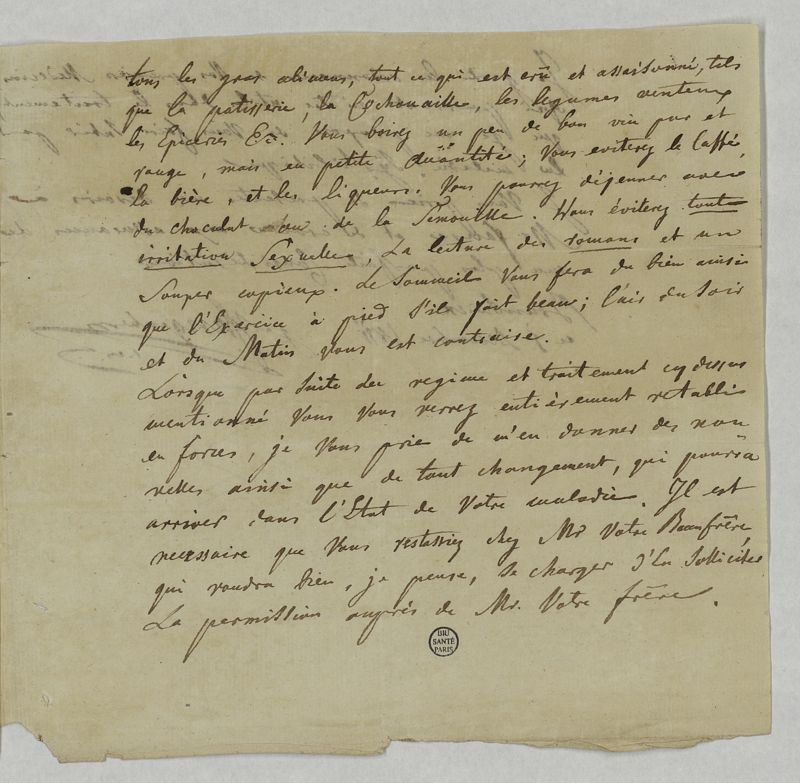 tous les gras alimens, tout ce qui est crû et assaisonné, tels
que la patisserie, la Cochonaille, les legumes venteux
les Epiceries &c. Vous boirez un peu de bon vin pur et
rouge, mais en petite quantité; Vous eviterez le Caffé,
la bière, et les liqueurs. Vous pourrez déjeuner avec
du chocolat ou de la Semouille. Vous éviterez toute
irritation Sexuelle, La lecture des romans et un
Souper copieux. Le Sommeil Vous fera du bien ainsi
que l'Exercice à pied s'il fait beau; l'air du Soir
et du Matin vous est contraire.
Lorsque par Suite du regime et traitement cydessus
mentionné Vous Vous verrez entièrement retabli
en forces, je Vous prie de m'en donner des nou
velles ainsi que de tout changement, qui pourra
arriver dans l'Etat de Votre maladie. Il est
necessaire que Vous restassiez chez Mr Votre Beaufrère,
qui voudra bien, je pense, se charger d'En Solliciter
La permission auprés de Mr. Votre frère.
BIU
SANTÉ
PARIS